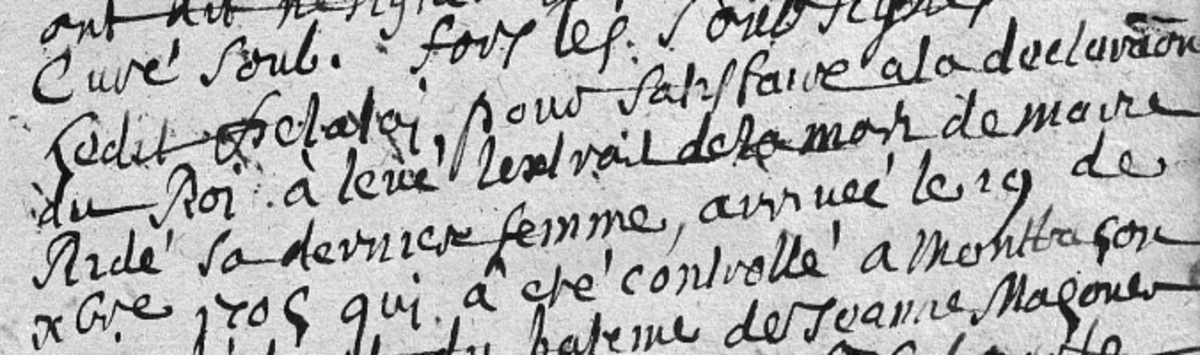 ont dit
Curé soub. fors les soubsignés
Ledit pour satisfaire a la declaraōn
du Roi. à levé lextrait de la mort de marie
Ardé sa derniere femme, arrivée le 19 de
xbre 1705 qui à eté controllé a Montfraçon
bateme de Jeanne Magoner